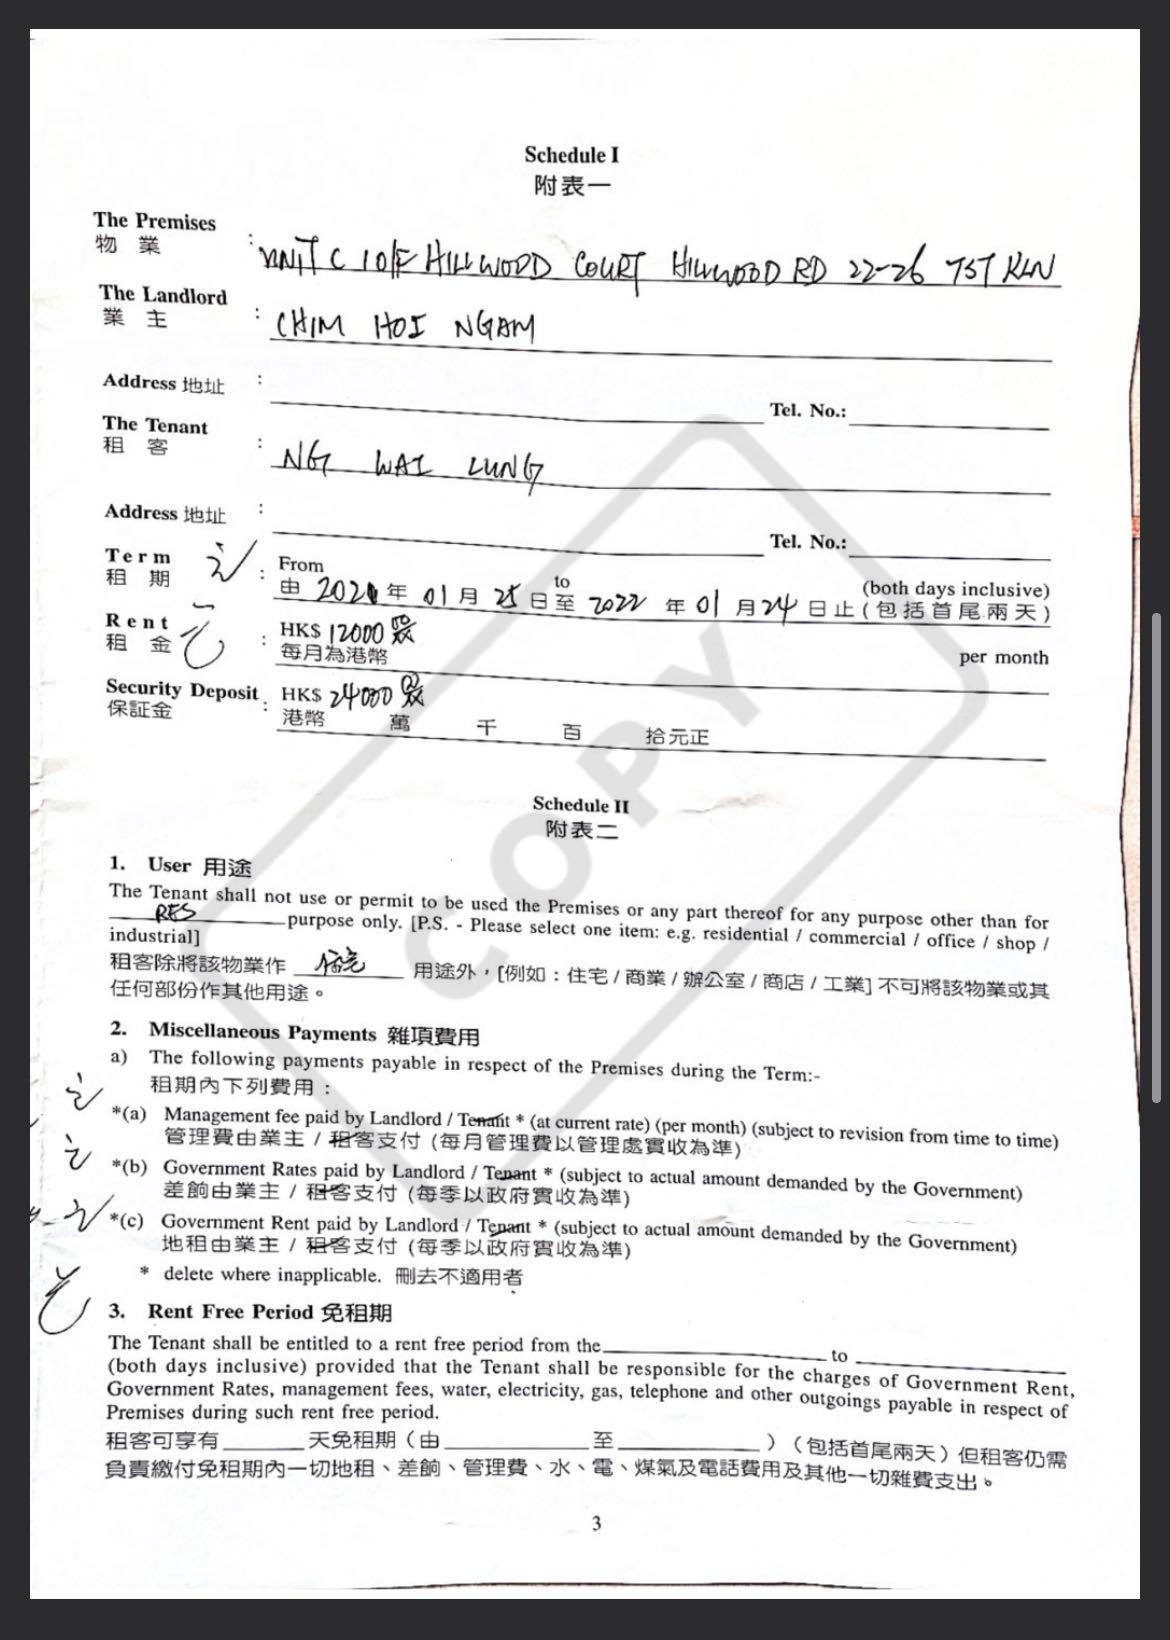 Schedule I
附表一
The Premises
物業 : UNIT C 10/F HILLWOOD COURT HILLWOOD RD 22-26 TST KLN
The Landlord
業主 : CHIM HOI NGAM
Address 地址 : Tel. No.:
The Tenant
租客 : NG WAI LUNG
Address 地址 : Tel. No.:
Term From to (both days inclusive)
租期 : 由 2021 年 01 月 25 日至 2022 年 01 月 24 日止 (包括首尾兩天)
Rent HK$ 12000
租金 : 每月為港幣 per month
Security Deposit HK$ 24000
保証金 : 港幣 萬 千 百 拾元正
Schedule II
附表二
1. User 用途
The Tenant shall not use or permit to be used the Premises or any part thereof for any purpose other than for
RES purpose only. [P.S. - Please select one item: e.g. residential / commercial / office / shop /
industrial]
租客除將該物業作 用途外，[例如：住宅 / 商業 / 辦公室 / 商店 / 工業] 不可將該物業或其
任何部份作其他用途。
2. Miscellaneous Payments 雜項費用
a) The following payments payable in respect of the Premises during the Term:-
租期內下列費用：
*(a) Management fee paid by Landlord / Tenant * (at current rate) (per month) (subject to revision from time to time)
管理費由業主 / 租客支付 (每月管理費以管理處實收為準)
*(b) Government Rates paid by Landlord / Tenant * (subject to actual amount demanded by the Government)
差餉由業主 / 租客支付 (每季以政府實收為準)
*(c) Government Rent paid by Landlord / Tenant * (subject to actual amount demanded by the Government)
地租由業主 / 租客支付 (每季以政府實收為準)
* delete where inapplicable. 刪去不適用者
3. Rent Free Period 免租期
The Tenant shall be entitled to a rent free period from the to
(both days inclusive) provided that the Tenant shall be responsible for the charges of Government Rent,
Government Rates, management fees, water, electricity, gas, telephone and other outgoings payable in respect of
Premises during such rent free period.
租客可享有 天免租期（由 至 ）（包括首尾兩天）但租客仍需
負責繳付免租期內一切地租、差餉、管理費、水、電、煤氣及電話費用及其他一切雜費支出。
3
COPY